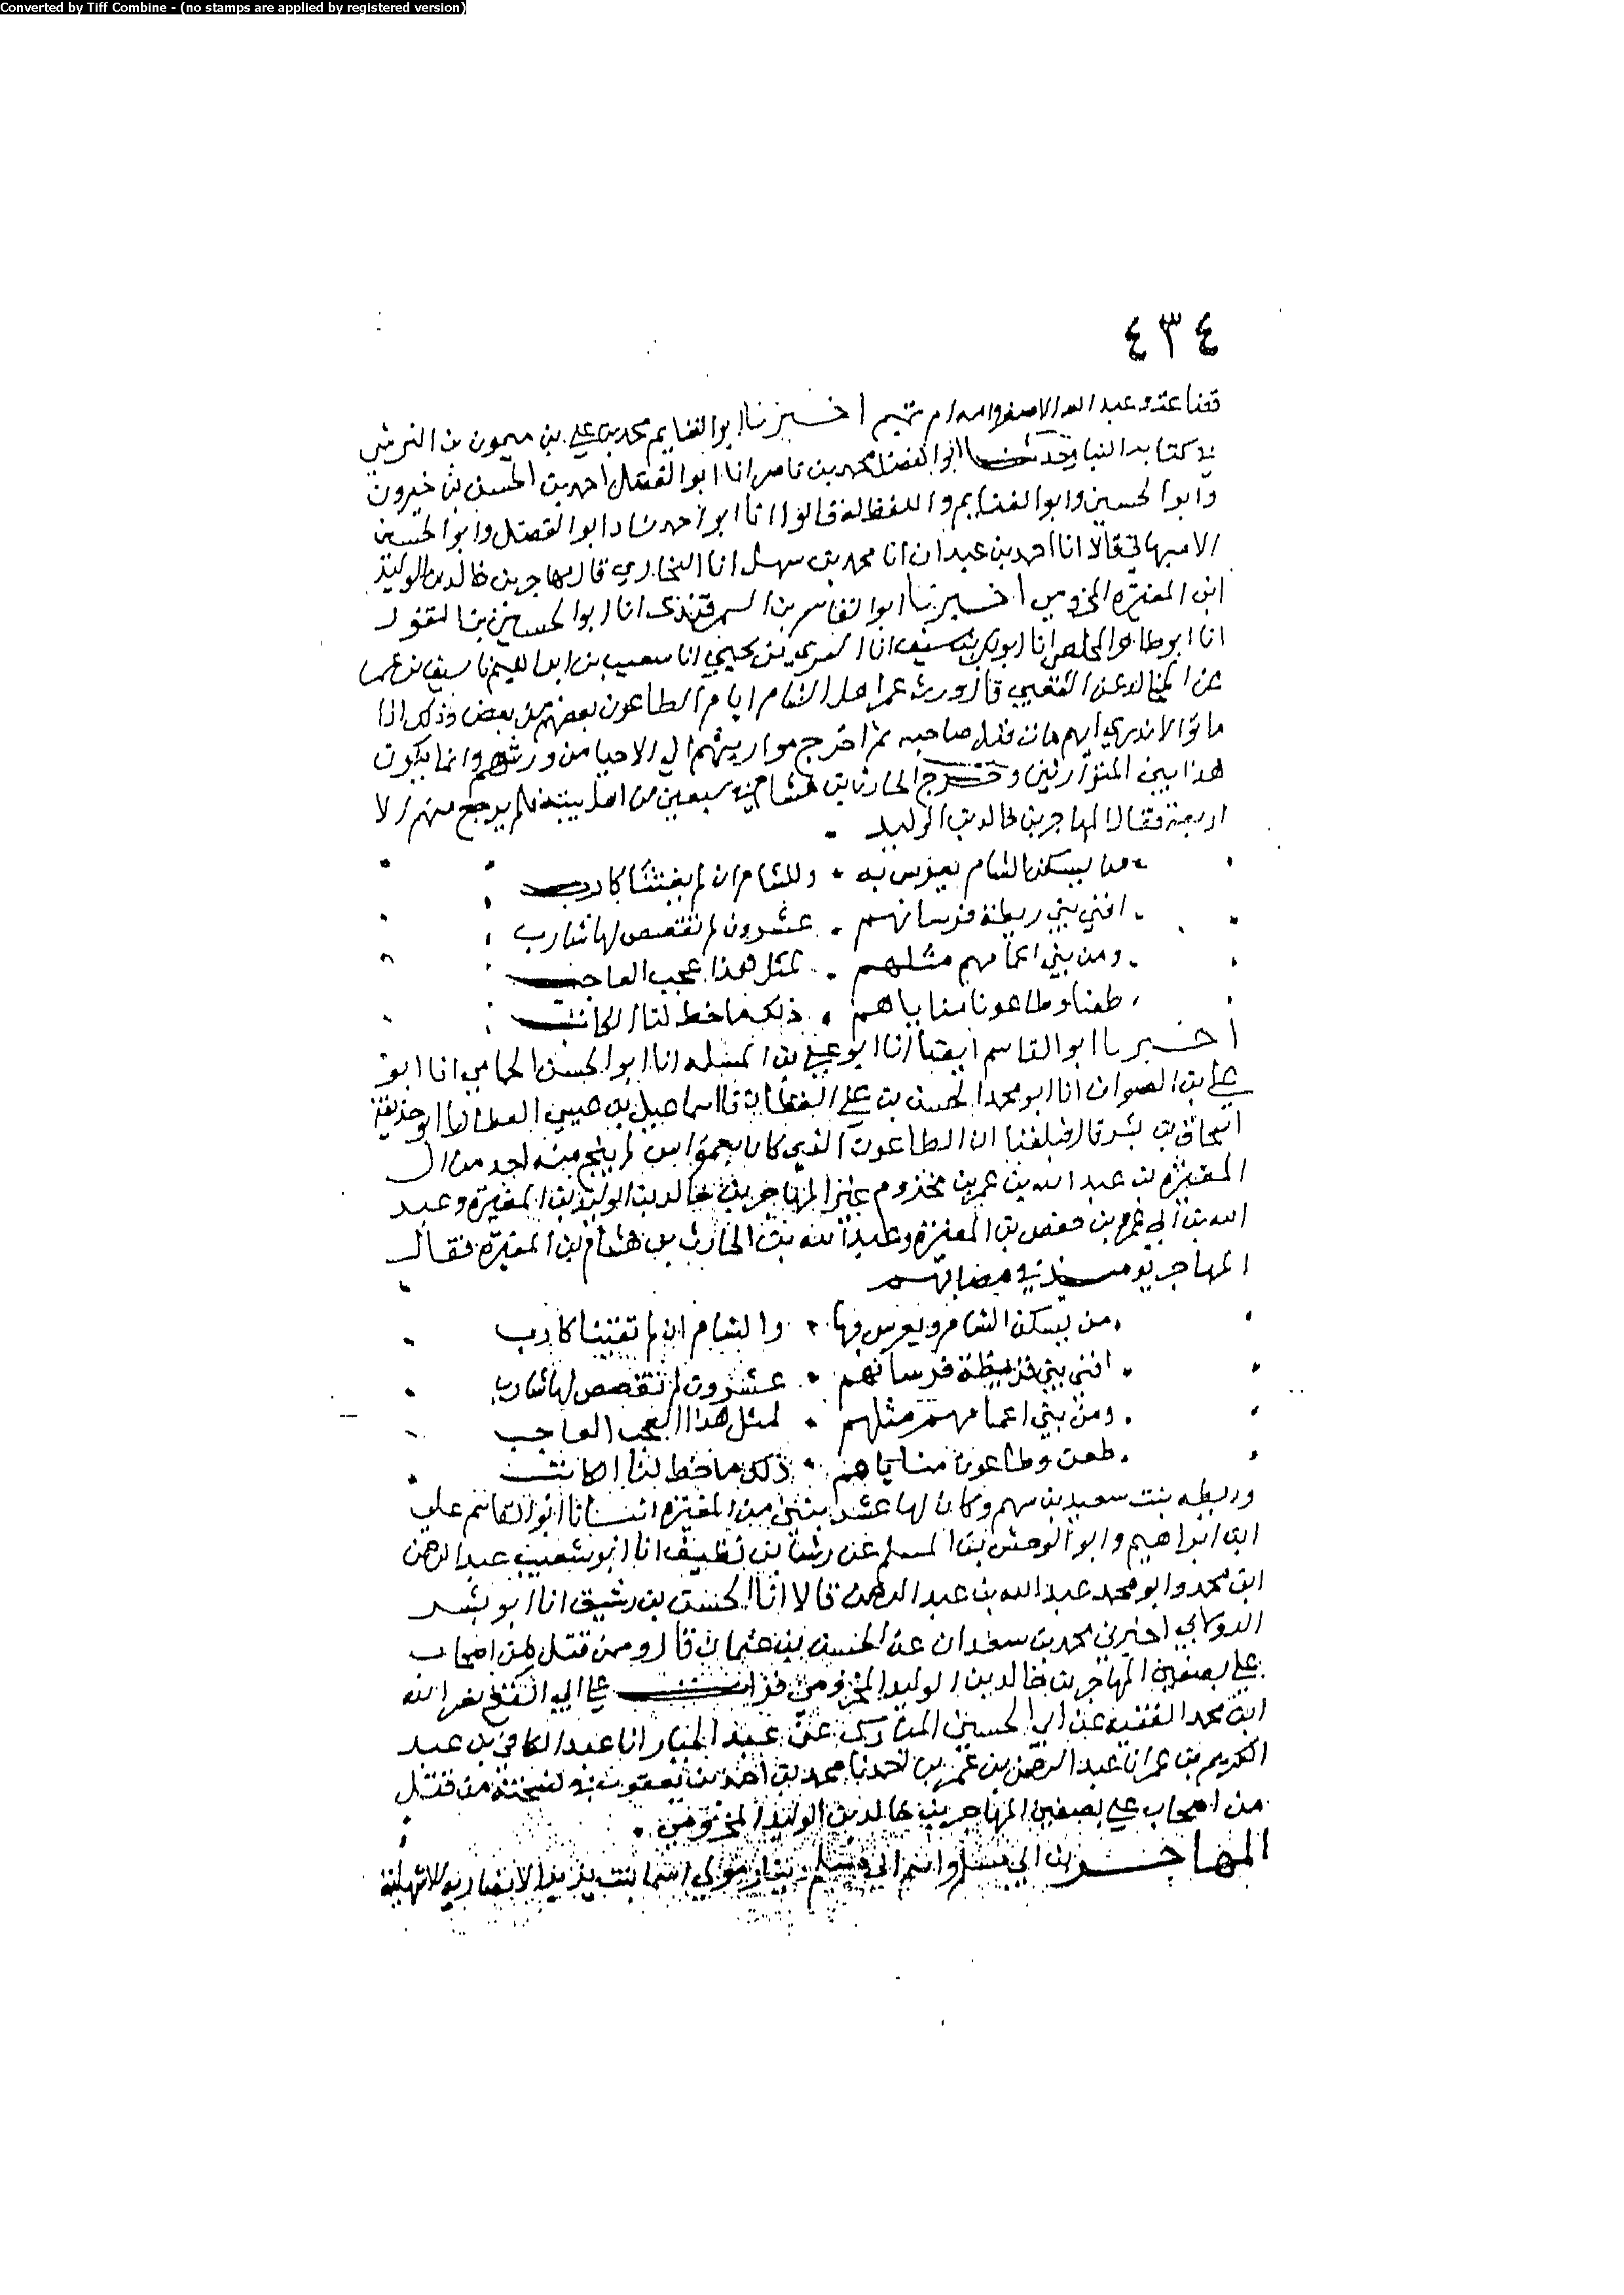 Converted by Tiff Combine - (no stamps are applied by registered version)
٤٣٤
وعبد الله الاصغر وامه ام تميم اخبرنا ابو الغنايم محمد بن علي بن ميمون بن النرسي
في كتابه ثنا ابو الفضل محمد بن ناصر انا ابو الفضل احمد بن الحسن بن خيرون
وابو الحسين وابو الغنايم واللفظ له قالوا انا ابو احمد زاد ابو الفضل وابو الحسين
الاصبهاني قالا انا احمد بن عبدان انا محمد بن سهل انا البخاري قال مهاجر بن خالد بن الوليد
ابن المغيره المخزومي اخبرنا ابو القاسم بن السمرقندي انا ابو الحسين بن النقور
انا ابو طاهر المخلص انا ابو بكر بن سيف انا السري بن يحيى انا شعيب بن ابراهيم نا سيف بن عمر
عن المجالد عن الشعبي قال ورث عمر اهل الشام ايام الطاعون بعضهم من بعض وذلك اذا
ماتوا لا ندري ايهم مات قبل صاحبه ثم اخرج مواريثهم الي الاحيا من ورثتهم وانما يكون
هذا بين المتوارثين وخرج الحارث بن هشام في سبعين من اهل بيته فلم يرجع منهم الا
اربعة فقال المهاجر بن خالد بن الوليد
من يسكن الشام يعرس به والشام ان لم يفننا كارب
افنى بني ريطة فرسانهم عشرون لم تقصص لها شارب
ومن بني اعمامهم مثلهم لمثل هذا عجب العاجب
طعنا وطاعونا مناياهم ذلك ما خط لنا الكاتب
اخبرنا ابو القاسم ايضا انا ابو علي بن المسلمه انا ابو الحسن الحمامي انا ابو
علي بن الصواف انا ابو محمد الحسن بن علي القطان نا اسماعيل بن عيسى العطار نا ابو حذيفة
اسحاق بن بشر قال فبلغنا ان الطاعون الذي كان بعمواس لم ينج منه احد من ال
المغيره بن عبد الله بن عمر بن مخزوم غير المهاجر بن خالد بن الوليد بن المغيره وعبد
الله بن ابي عمرو بن حفص بن المغيره وعبد الله بن الحارث بن هشام بن المغيره فقال
المهاجر يومئذ في مصابهم
من يسكن الشام ويعرس بها والشام ان لم تفننا كارب
افنى بني قريظة فرسانهم عشرون لم تقصص لها شارب
ومن بني اعمامهم مثلهم لمثل هذا العجب العاجب
طعن وطاعون مناياهم ذلك ما خط لنا الكاتب
وريطه بنت سعيد بن سهم وكان لها عشر بنين من المغيره انبانا ابو القاسم علي
ابن ابراهيم وابو الوحش بن المسلم عن رشا بن نظيف انا ابو شعيب عبد الرحمن
ابن محمد وابو محمد عبد الله بن عبد الرحمن قالا انا الحسن بن رشيق انا ابو بشر
الدولابي اخبرني محمد بن سعدان عن الحسن بن عثمان قال وممن قتل من اصحاب
علي بصفين المهاجر بن خالد بن الوليد المخزومي قرات علي ابي الفتح نصر الله
ابن محمد الفقيه عن ابي الحسين المبارك عن عبد الجبار انا عبد الكافي بن عبد
الكريم بن عمر انا عبد الرحمن بن عمر بن احمد نا محمد بن احمد بن يعقوب في تسمية من قتل
من اصحاب علي بصفين المهاجر بن خالد بن الوليد المخزومي
المهاجر بن ابي مسلم واسم ابي مسلم دينار مولي اسما بنت يزيد الانصاريه الاشهلية